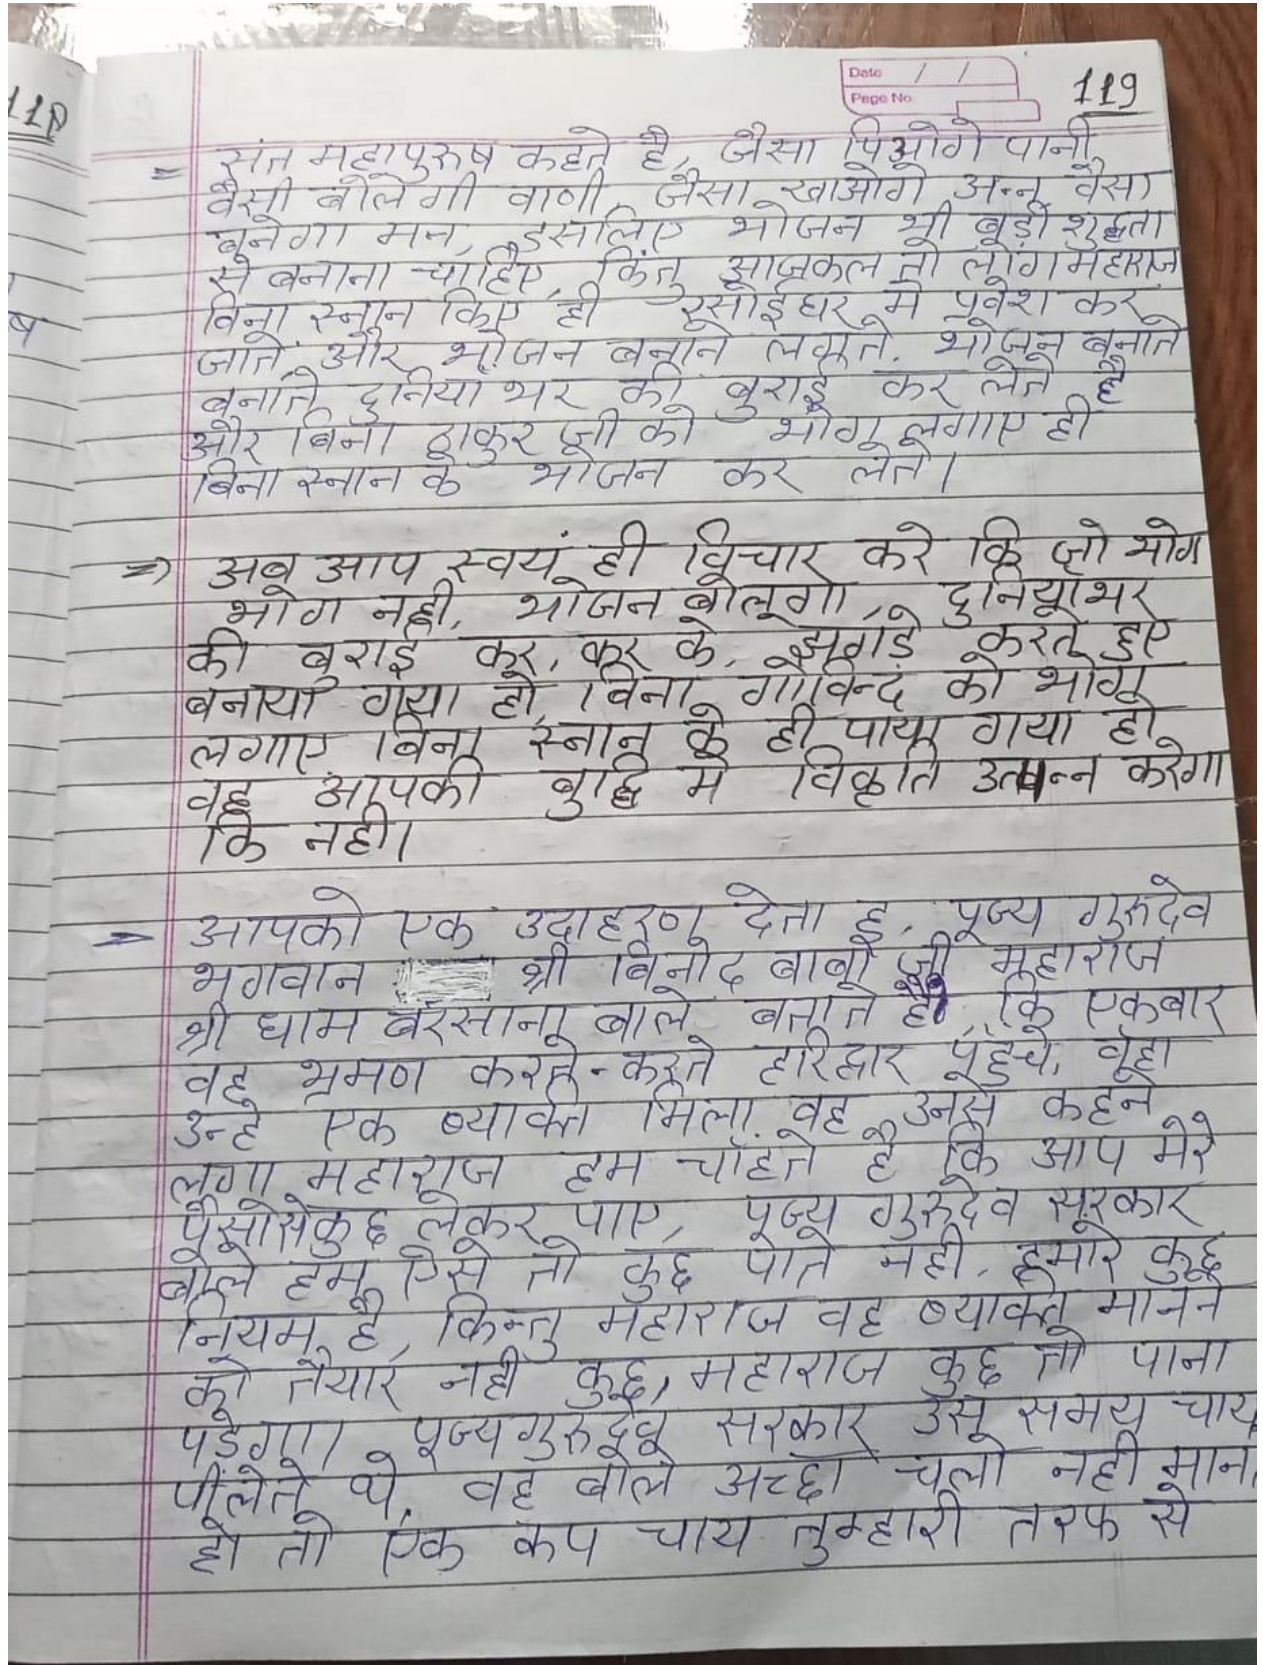 11P
ष
Date / /
Page No.
119
= संत महापुरुष कहते है, जैसा पिओगे पानी
वैसी बोलेगी वाणी, जैसा खाओगे अन्न वैसा
बनेगा मन, इसलिए भोजन भी बड़ी शुद्धता
से बनाना चाहिए, किंतु आजकल तो लोग महाराज
बिना स्नान किए ही रसोईघर मे प्रवेश कर
जाते और भोजन बनाने लगते, भोजन बनाते
बनाते दुनिया भर की बुराई कर लेते है
और बिना ठाकुर जी को भोग लगाए ही
बिना स्नान के भोजन कर लेते।
=> अब आप स्वयं ही विचार करे कि जो भोग
भोग नही, भोजन बोलूगा, दुनियाभर
की बुराई कर, कर के, झगडे करते हुए
बनाया गया हो, बिना गोविन्द को भोग
लगाए बिना स्नान के ही पाया गया हो
वह आपकी बुद्धि मे विकृति उत्पन्न करेगा
कि नही।
- आपको एक उदाहरण देता हू, पूज्य गुरुदेव
भगवान श्री विनोद बाबा जी महाराज
श्री धाम बरसाना बाले बताते है कि एकबार
वह भ्रमण करते-करते हरिद्वार पहुंचे, वहा
उन्हे एक व्यक्ति मिला, वह उनसे कहने
लगा महाराज हम चाँहते है कि आप मेरे
पैसोसेकुछ लेकर पाए, पूज्य गुरुदेव सरकार
बोले हम ऐसे तो कुछ पाते नही, हमारे कुछ
नियम है, किन्तु महाराज वह व्यक्ति मानने
को तैयार नही कुछ, महाराज कुछ तो पाना
पडेगा। पूज्यगुरुदेव सरकार उस समय चाय
पीलेते थे, वह बोले अच्छा चलो नही मान
हो तो एक कप चाय तुम्हारी तरफ से